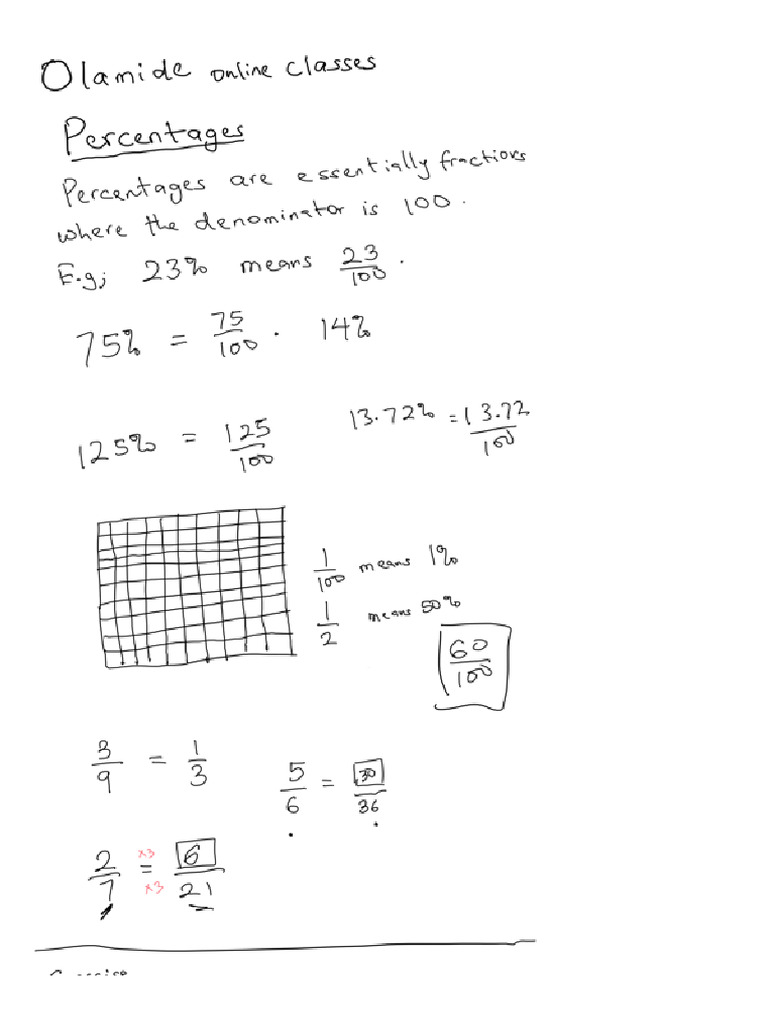 Olamide online classes
Percentages
Percentages are essentially fractions
where the denominator is 100.
E.g; 23% means 23/100.
75% = 75/100. 14%
125% = 125/100 13.72% = 13.72/100
1/100 means 1%
1/2 means 50%
60/100
3/9 = 1/3 5/6 = 30/36
2/7 = 6/21 x3 x3